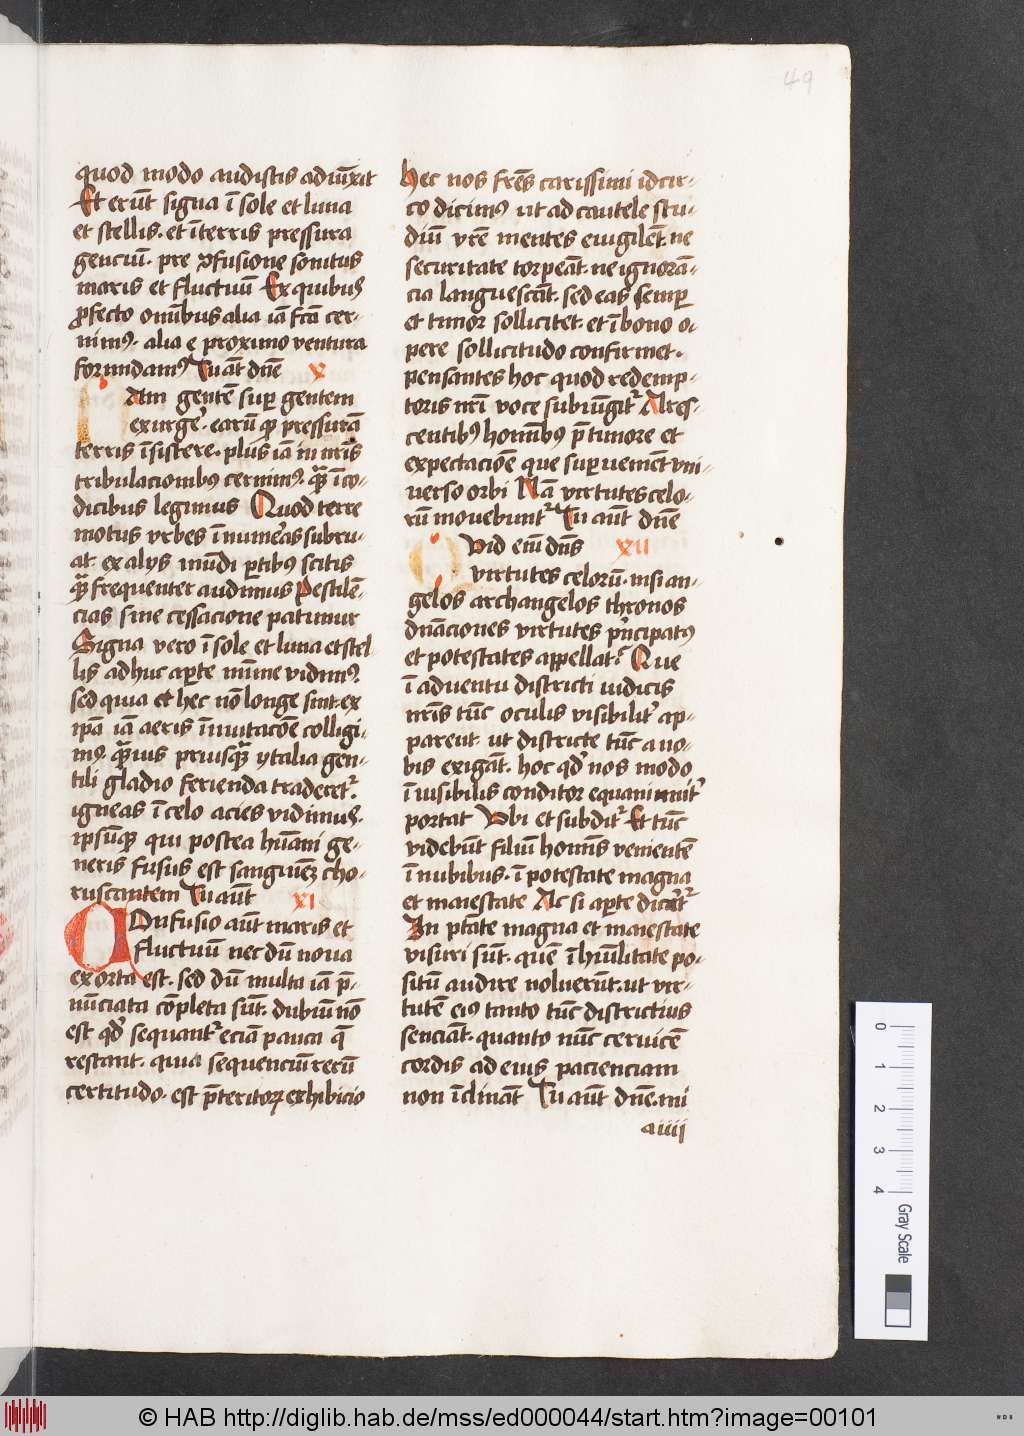 49
quod modo audistis adiūxit
Et erūt signa ī sole et luna
et stellis. et ī terris pressura
genciū. pre ꝯfusione sonitus
maris et fluctuū Ex quibus
ꝓfecto omībus alia iā fc̄a cer-
nimꝰ. alia e proximo ventura
formidamꝰ Tu aūt dn̄e X
Am gentē suꝑ gentem
exurgeͬ. earū qꝫ pressurā
terris īsistere. plus iā in nr̄is
tribulacionibꝰ cernimꝰ. qᷓ ī co-
dicibus legimus Quod terre
motus vrbes īnumeͬas subru-
at. ex alys mūdi ꝑtibus scitis
qᷓ frequenter audimus Pestilē-
cias sine cessacione patimur
Signa vero ī sole et luna et stel
lis adhuc aꝑte mīme vidimꝰ.
sed quia et hec nō longe sint. ex
ipā iā aeris īmutacōe colligi-
mꝰ. qᷓuis priusqᷓ ytalia gen-
tili gladio ferienda traderetᷣ.
igneas ī celo acies vidimus.
ipsūqꝫ qui postea hūani ge-
neris fusus est sanguinē cho-
ruscantem Tu aūt XI
COnfusio aūt maris et
fluctuū nec dū noua
exorta est. sed dū multa iā p̄-
nūciata cōpleta sūt. dubiū nō
est qd̄ sequantᷣ eciā pauca q̄
restant. quia sequenciū rerū
certitudo. est p̄teritoꝝ exhibicio
hec nos fr̄es carissimi idcir-
co dicimꝰ ut ad cautele stu-
diū vr̄e mentes euigilēt. ne
securitate torpeāt. ne ignorā-
cia languescāt. sed eas semꝑ
et timor sollicitet. et ī bono o-
pere sollicitudo confirmet.
pensantes hoc quod redemp-
toris nr̄i voce subiūgitᷣ Ares-
centibꝰ homībus p̄ timore et
expectacōe que suꝑueniēt vni-
verso orbi Nā virtutes celo-
rū mouebuntᷣ Tu aūt dn̄e
Vid eni dn̄s XII
virtutes celorū. nisi an-
gelos archangelos thronos
dn̄aciones virtutes pͥncipatꝰ
et potestates appellatᷣ Que
ī aduentu districti iudicis
nr̄is tūc oculis visibilitͬ ap-
parent. ut districte tūc a no-
bis exigāt. hoc qd̄ nos modo
īuisibilis conditor equanimitͬ
portat Vbi et subditᷣ Et tūc
videbūt filiū homīs venientē
ī nubibus. ī potestate magna
et maiestate Ac si aꝑte diceͬtᷣ
In ptāte magna et maiestate
visuri sūt. quē ī hūilitate po-
sitū audire noluerūt. ut vir-
tutē eiꝰ tanto tūc districtius
senciāt. quanto nūc ceruicē
cordis ad eius pacienciam
non īclināt Tu aūt dn̄e. mi
aiiij
0 1 2 3 4
Gray Scale
© HAB http://diglib.hab.de/mss/ed000044/start.htm?image=00101